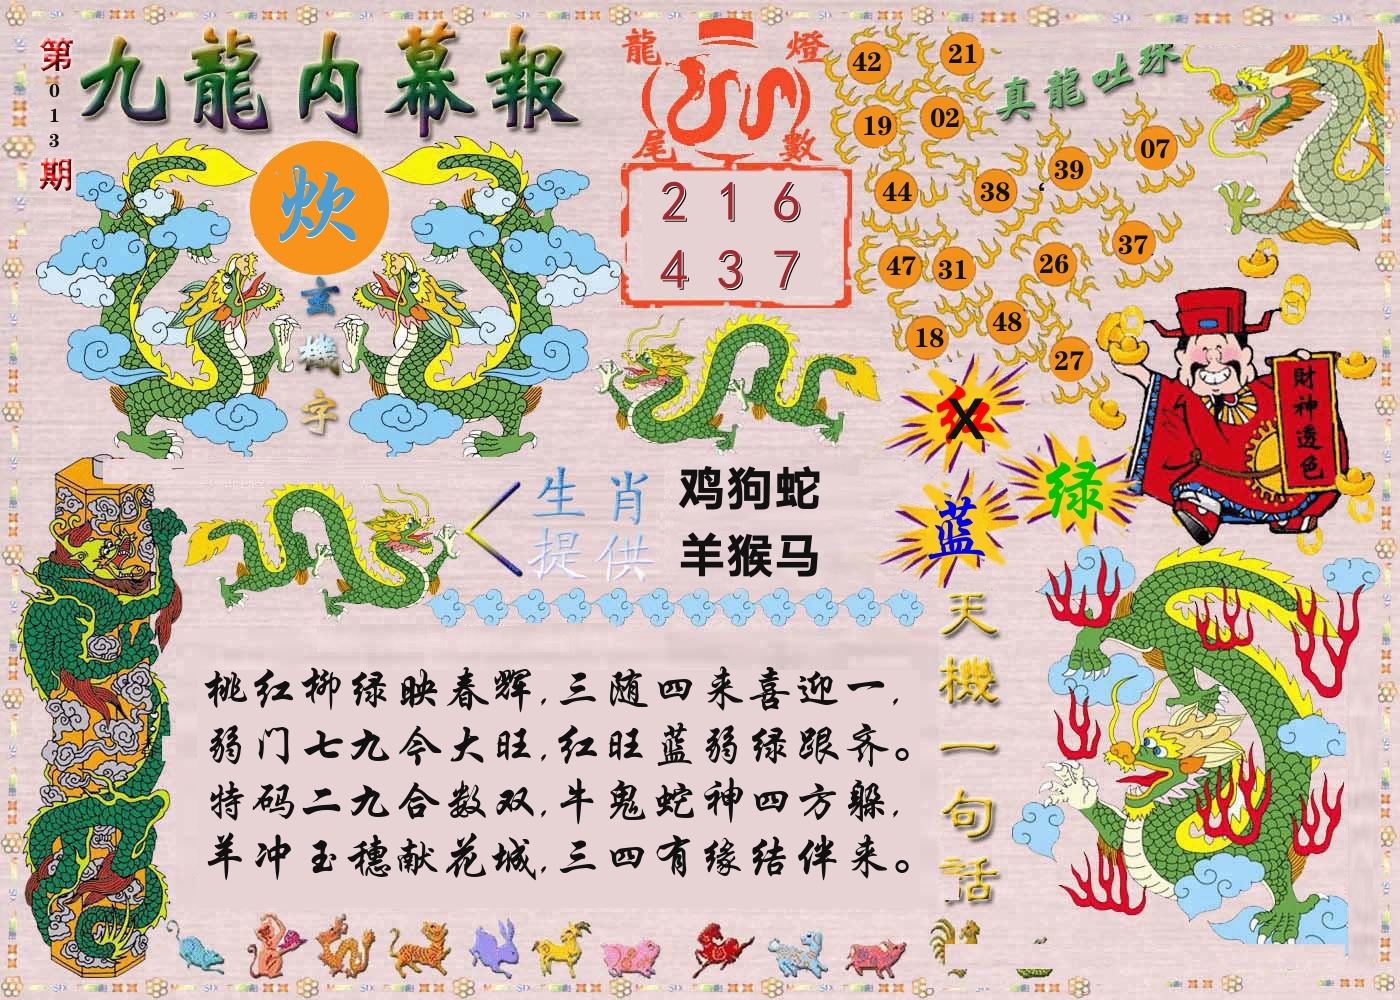 第013期
九龍内幕報
炊
玄機字
龍燈
尾數
2 1 6
4 3 7
真龍吐珠
42 21
19 02
39 07
44 38
37
47 31 26
18 48
27
财神透色
红 X
绿
蓝
生肖
提供
鸡狗蛇
羊猴马
桃红柳绿映春辉,三随四来喜迎一,
弱门七九今大旺,红旺蓝弱绿跟齐。
特码二九合数双,牛鬼蛇神四方躲,
羊冲玉穗献花城,三四有缘结伴来。
天機一句話